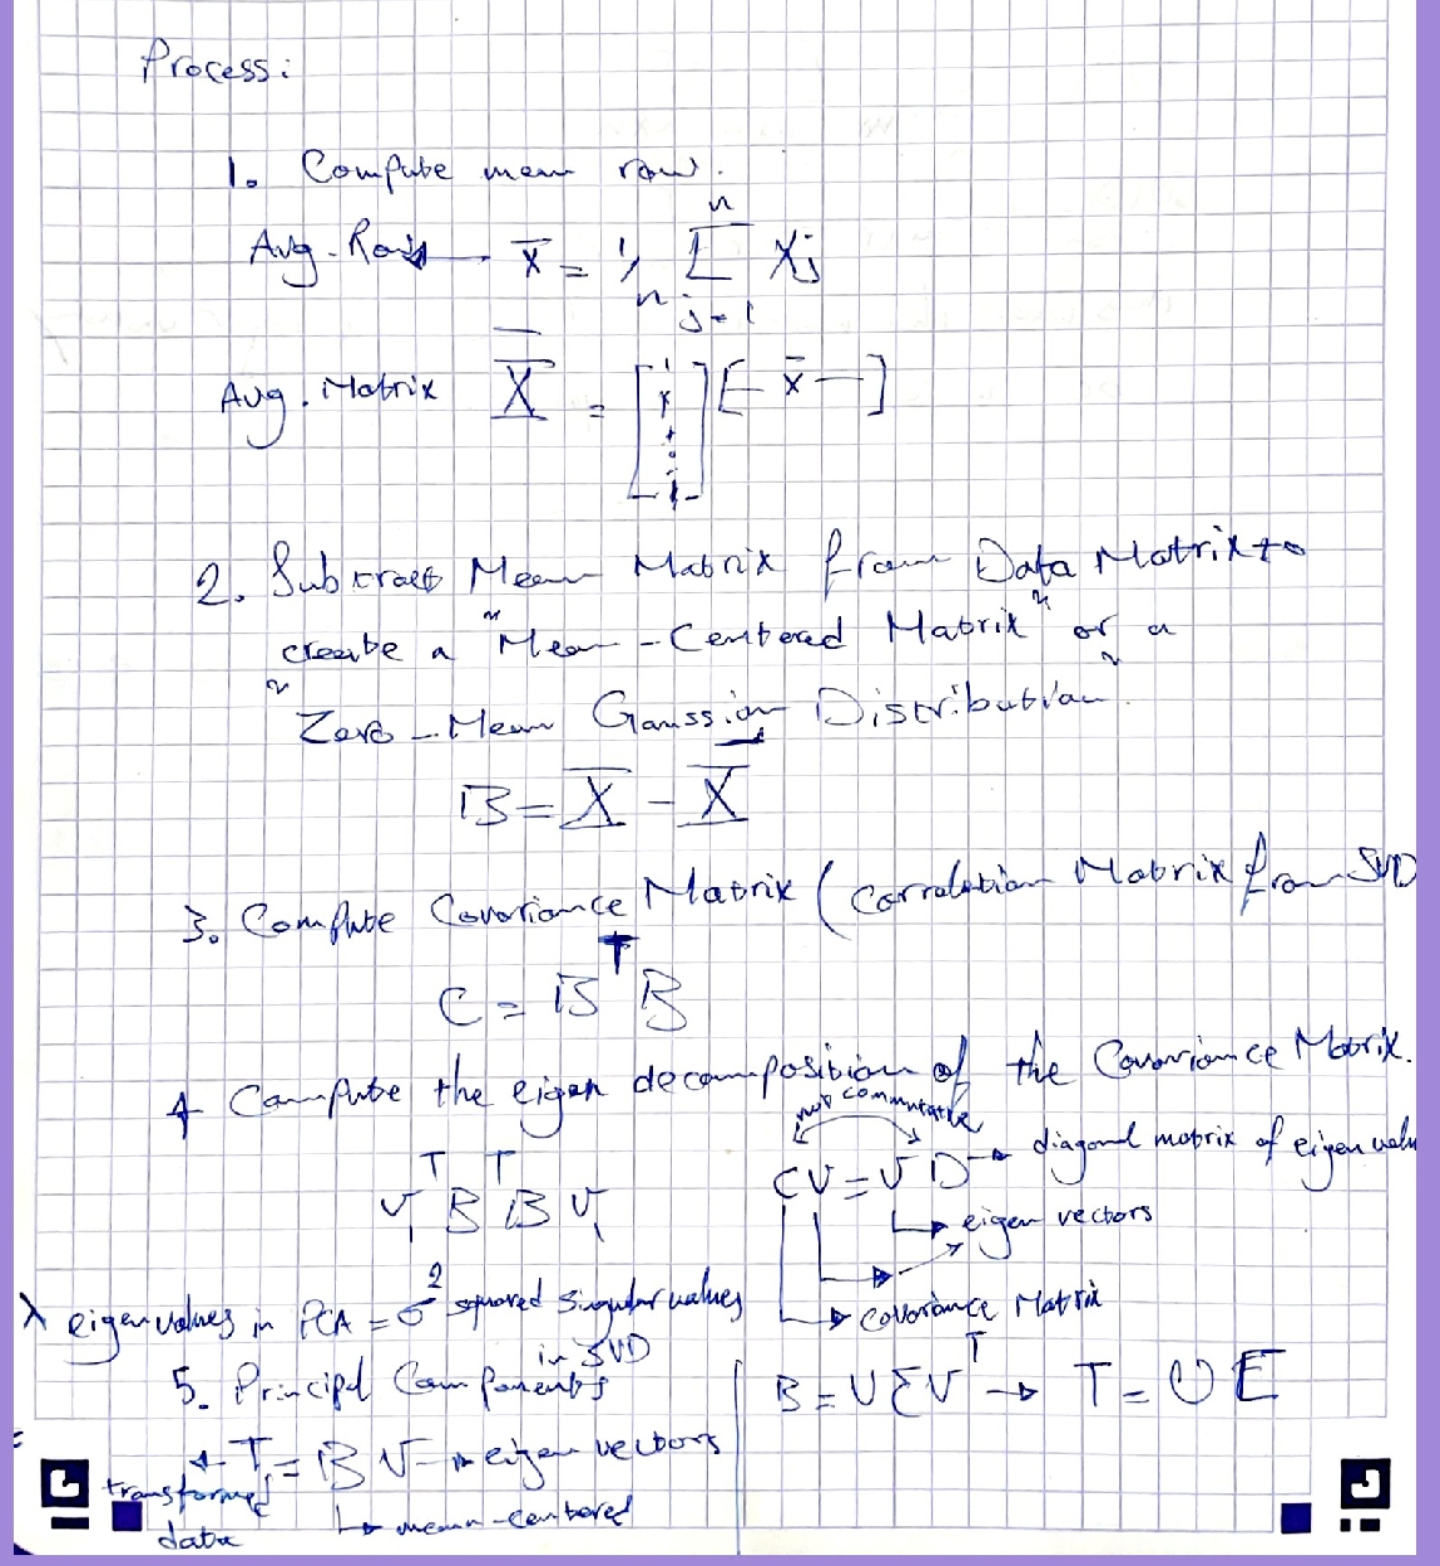 Process:
1. Compute mean row.
Avg. Row → x̄ = 1/n Σ_{j=1}^{n} Xj
Avg. Matrix X̄ = [1 1 ⋮ 1] [— x̄ —]
2. Subtract Mean Matrix from Data Matrix to
create a "Mean-Centered Matrix" or a
"Zero-Mean Gaussian Distribution".
B = X - X̄
3. Compute Covariance Matrix (Correlation Matrix from SVD
C = B^T B
4 Compute the eigen decomposition of the Covariance Matrix.
not commutative
v₁^T B^T B v₁
CV = VD → diagonal matrix of eigen valu
eigen vectors
Covariance Matrix
λ eigenvalues in PCA = σ² squared singular values
in SVD
5. Principal Components
B = UΣV^T → T = UΣ
← T = BV → eigen vectors
transformed
data
↳ mean-centered